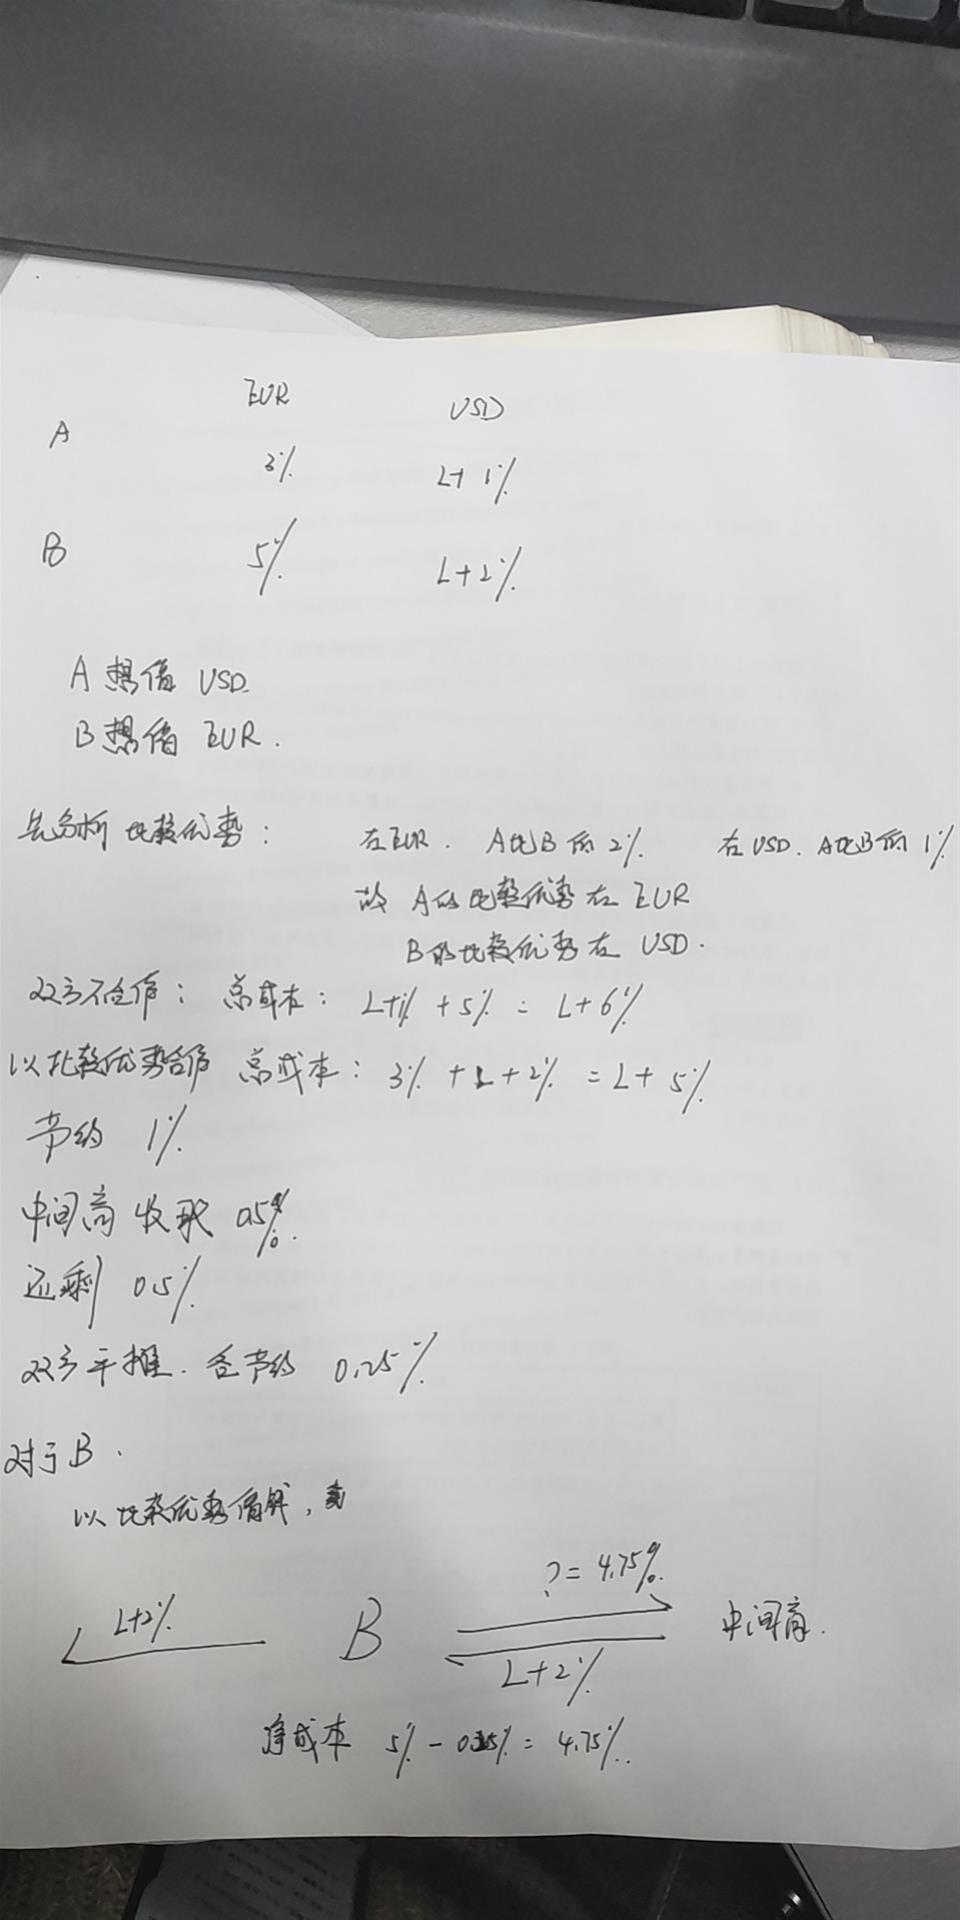 EUR USD
A
3% L+1%
B 5% L+2%
A 想借 USD.
B 想借 EUR.
先分析 比较优势: 在EUR. A比B低 2%. 在USD. A比B低 1%
故 A的比较优势在 EUR
B的比较优势在 USD.
双方不合作: 总成本: L+1% + 5% = L+6%
以比较优势合作 总成本: 3% + L + 2% = L + 5%
节约 1%.
中间商 收取 0.5%.
还剩 0.5%.
双方平摊. 各节约 0.25%.
对于B.
以比较优势借钱,
? = 4.75%.
L+2% B 中间商.
L+2%
净成本 5% - 0.25% = 4.75%.